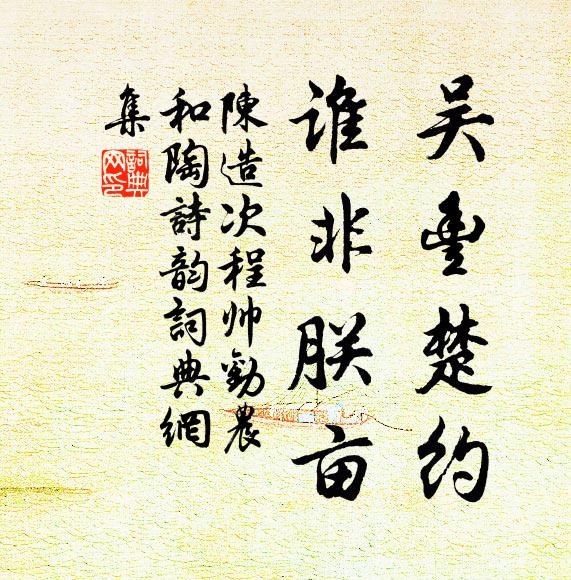 吴豊楚约
谁非朕亩
陳造次程帅勸農
和陶詩韵詞典網
集
詞典网印